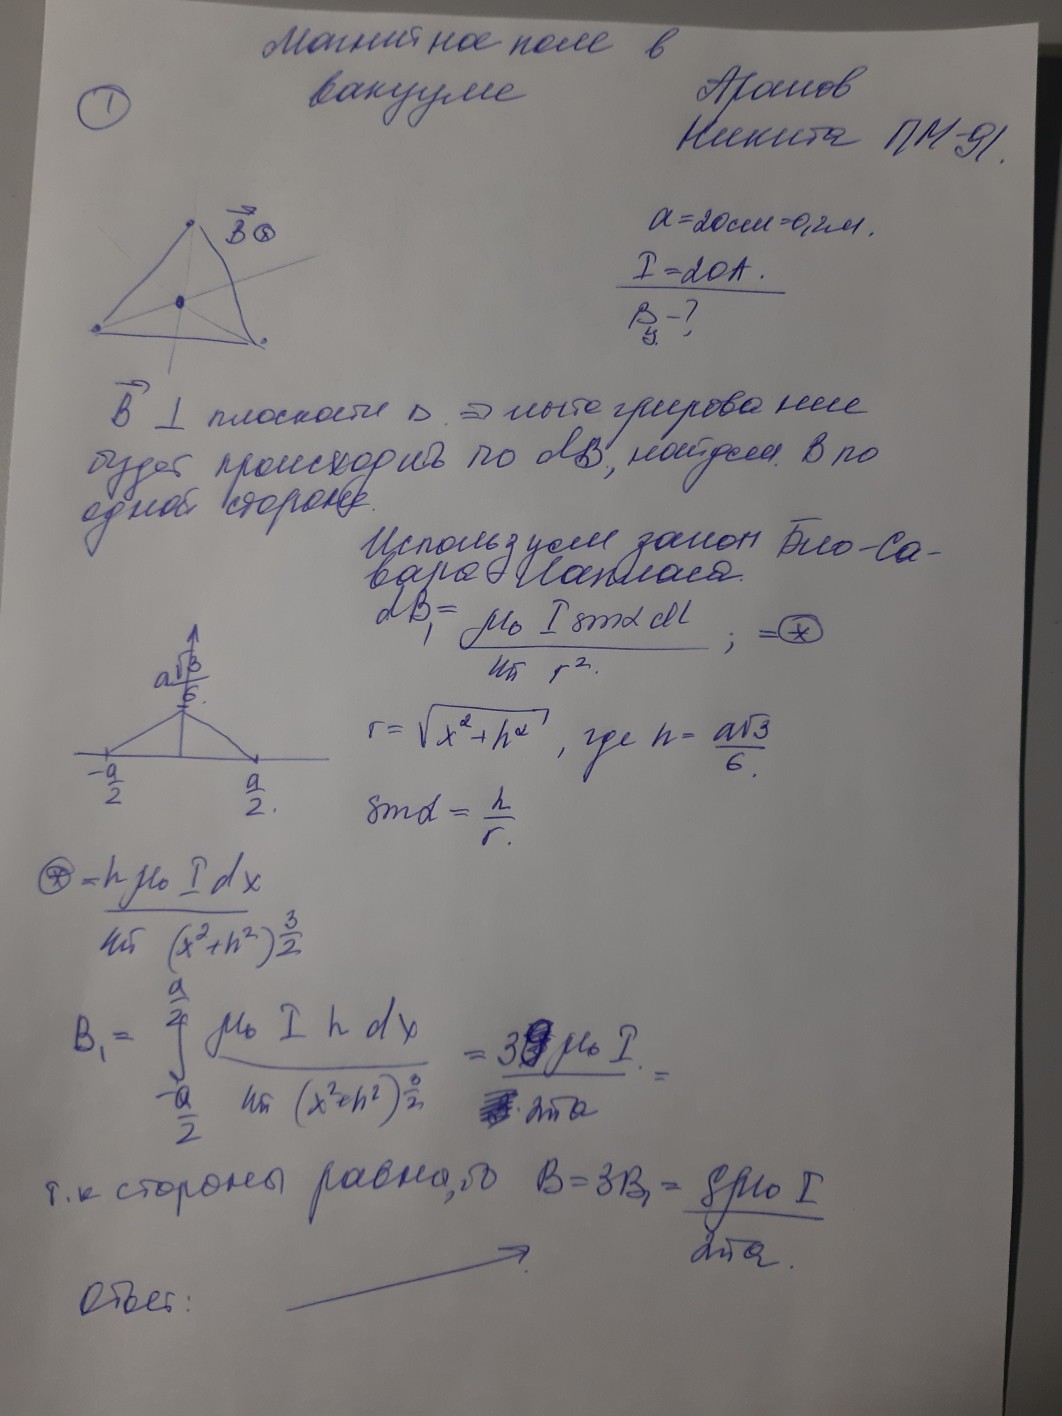 Магнитное поле в
вакууме
①
Арапов
Никита ПМ-91.
B⃗ ⊗
a=20см=0,2м.
I=20А.
B -?
B⃗ ⊥ плоскости △ ⇒ интегрирование
будет происходить по dB, найдем B по
одной стороне.
Используем закон Био-Са-
вара-Лапласа.
dB₁= μ₀ I sinα dl / 4π r² ; =⊛
a√3/6.
-a/2
a/2.
r=√(x²+h²), где h= a√3/6.
sinα = h/r.
⊛ = h μ₀ I dx / 4π (x²+h²)^(3/2)
B₁= ∫_{-a/2}^{a/2} μ₀ I h dx / 4π (x²+h²)^(3/2) = 3 μ₀ I / 2πa =
т.к стороны равна, то B=3B₁= 9μ₀ I / 2πa.
Ответ: